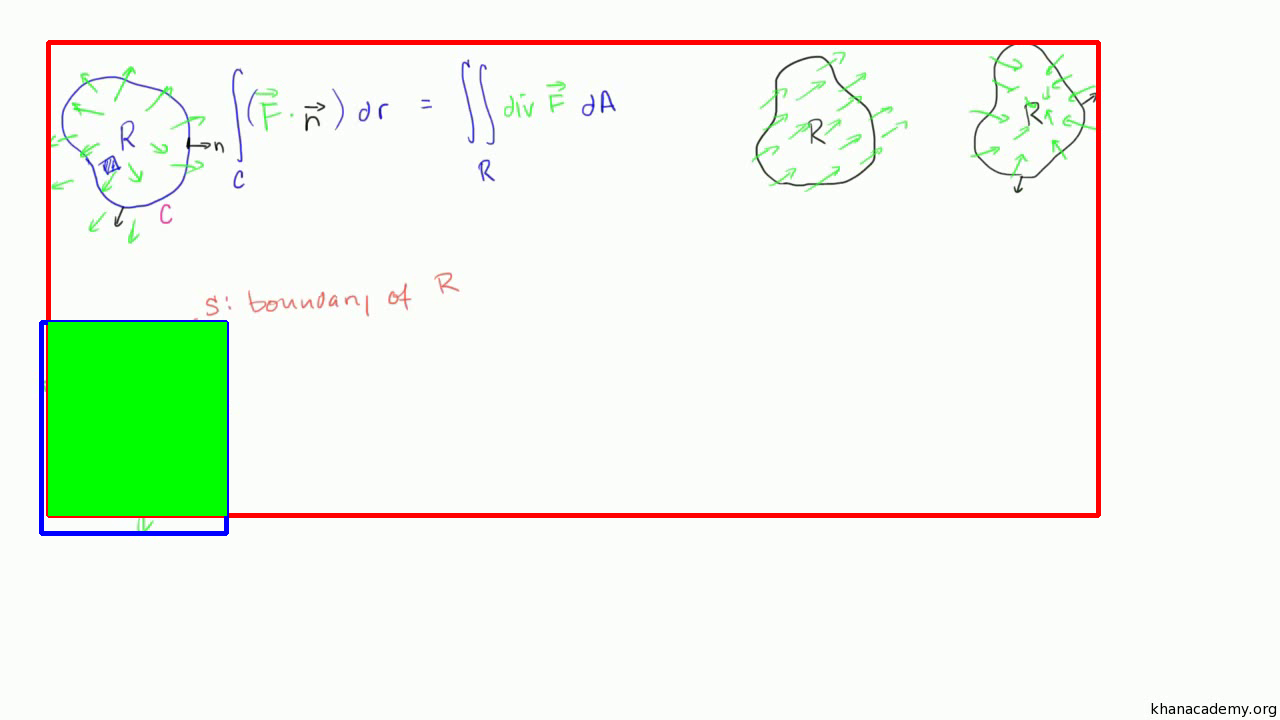 R
n
C
∫_C (F⃗ · n⃗) dr = ∬_R div F⃗ dA
R
R
S: boundary of R
khanacademy.org